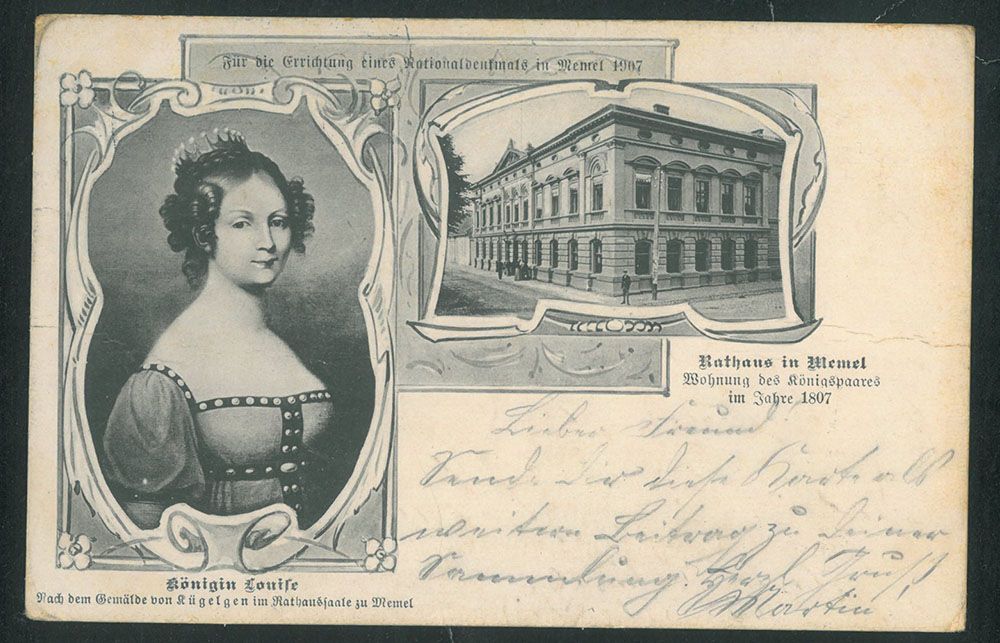 Für die Errichtung eines Nationaldenkmals in Memel 1907
Rathaus in Memel
Wohnung des Königspaares
im Jahre 1807
Lieber Freund
Sende Dir diese Karte als
weitern Beitrag zu Deiner
Sammlung. Herzl. Gruß
Martin
Königin Louiſe
Nach dem Gemälde von Kügelgen im Rathausſaale zu Memel